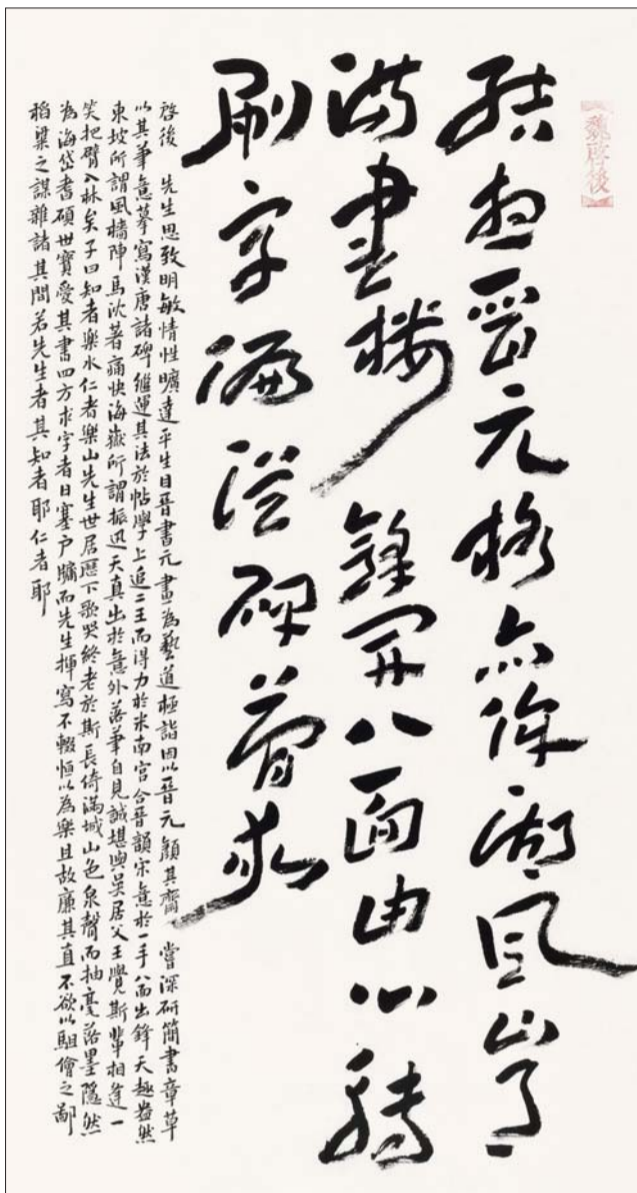 魏啓後
結想晉元格亦侔湖風山月
滿書樓鋒開八面由心轉
刷字偏從碑簡求
啓後先生思致明敏情性曠達平生目晉書元畫為藝道極詣因以晉元顏其齋嘗深研簡書章草
以其筆意摹寫漢唐諸碑繼運其法於帖學上追二王而得力於米南宮合晉韻宋意於一手八面出鋒天趣盎然
東坡所謂風檣陣馬沈著痛快海嶽所謂振迅天真出於意外落筆自見誠堪與吳居父王覺斯輩相逢一
笑把臂入林矣子曰知者樂水仁者樂山先生世居歷下歌哭終老於斯長倚滿城山色泉聲而抽毫落墨隱然
為海岱耆碩世寶愛其書四方求字者日塞户牖而先生揮寫不輟恒以為樂且故廉其直不欲以駔儈之鄙
稻粱之謀雜諸其間若先生者其知者耶仁者耶